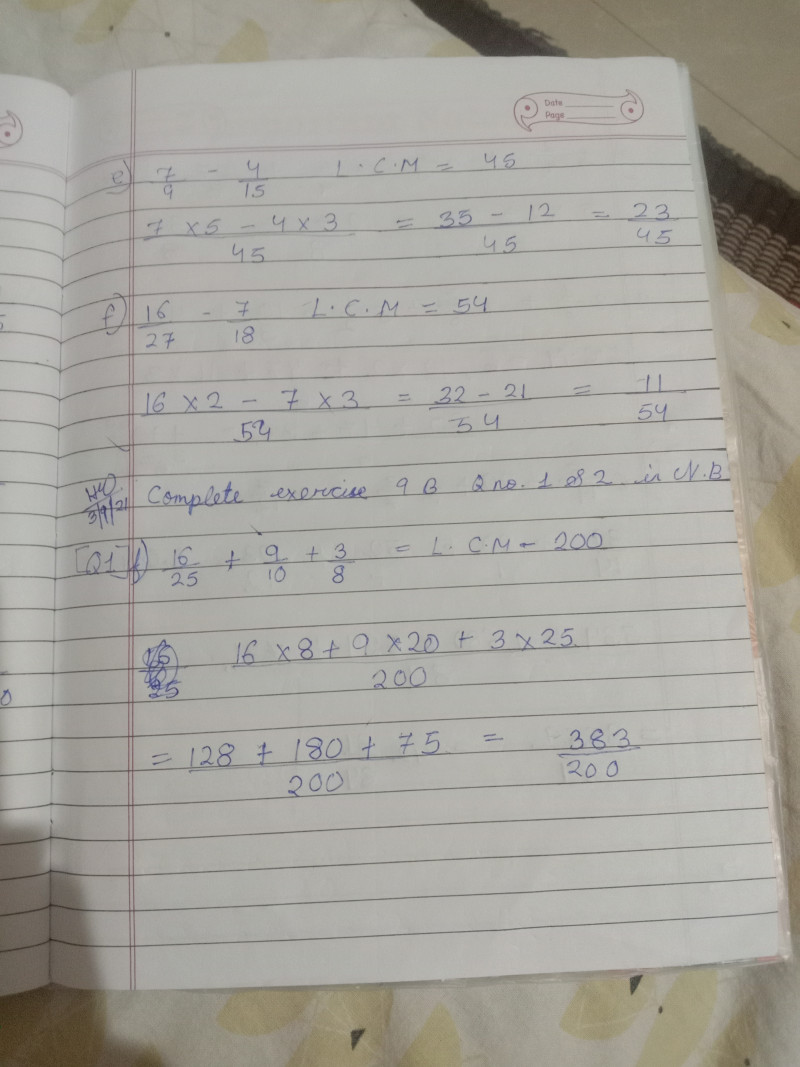 Date
Page
e) 7/9 - 4/15 L.C.M = 45
7 x 5 - 4 x 3 / 45 = 35 - 12 / 45 = 23/45
f) 16/27 - 7/18 L.C.M = 54
16 x 2 - 7 x 3 / 54 = 32 - 21 / 54 = 11/54
HW
3/9/21 Complete exercise 9 B Q no. 1 & 2 in N.B
[Q1] f) 16/25 + 9/10 + 3/8 = L.C.M - 200
16 x 8 + 9 x 20 + 3 x 25 / 200
= 128 + 180 + 75 / 200 = 383/200